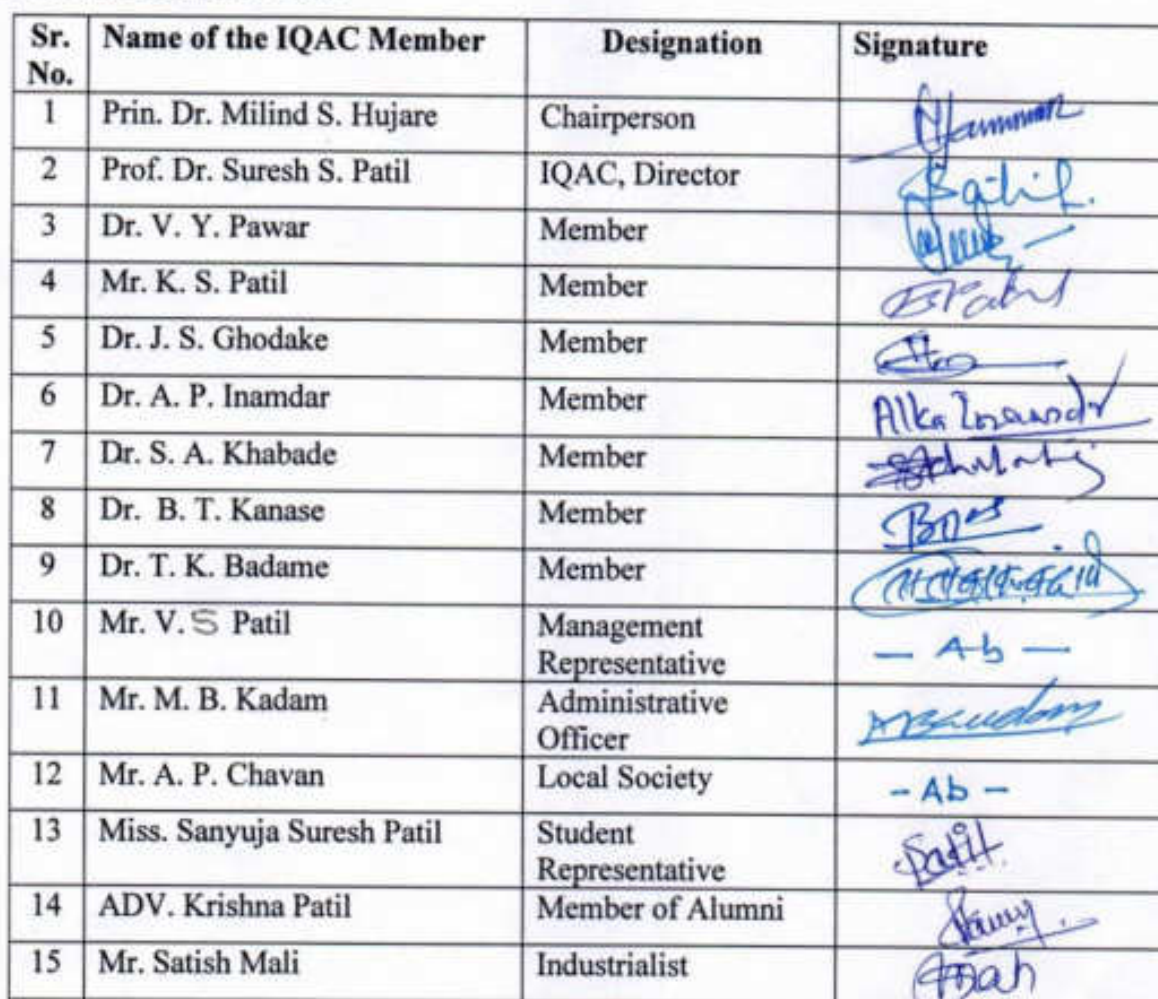 Sr. No. Name of the IQAC Member Designation Signature
1 Prin. Dr. Milind S. Hujare Chairperson
2 Prof. Dr. Suresh S. Patil IQAC, Director Patil.
3 Dr. V. Y. Pawar Member
4 Mr. K. S. Patil Member
5 Dr. J. S. Ghodake Member
6 Dr. A. P. Inamdar Member Alka Inamdar
7 Dr. S. A. Khabade Member
8 Dr. B. T. Kanase Member
9 Dr. T. K. Badame Member
10 Mr. V. S Patil Management Representative – Ab –
11 Mr. M. B. Kadam Administrative Officer
12 Mr. A. P. Chavan Local Society – Ab –
13 Miss. Sanyuja Suresh Patil Student Representative
14 ADV. Krishna Patil Member of Alumni
15 Mr. Satish Mali Industrialist